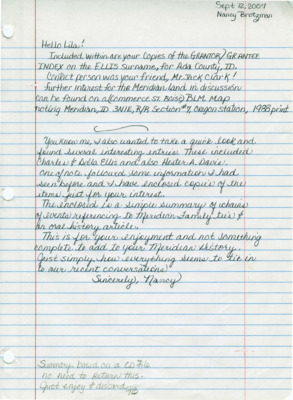 Sept 12, 2007
Nancy Brotzman
Hello Lila!
Included within are your Copies of the GRANTOR/GRANTEE
INDEX on the ELLIS Surname, for Ada County, ID.
Contact person was your friend, Mr. Jack Clark!
Further interest for the Meridian land in discussion
can be found on a Commerce St. Boise BLM Map
noting Meridian, ID 3N1E, R/R Section # 7, Oregon station, 1988 print
You know me, I also wanted to take a quick look and
found several interesting entries. These included
Charles & Lolla Ellis and also Hester A. Davis.
One of note followed some information I had
seen before and I have enclosed copies of the
items just for your interest.
The enclosed is a simple summary of
of events referencing to Meridian Family ties &
an oral history article.
This is for your enjoyment and not something
complete to add to your Meridian History.
Just simply how everything seems to tie in
to our recent conversations!
Sincerely, Nancy
Summary based on a CD file
no need to return this -
Just enjoy & discard